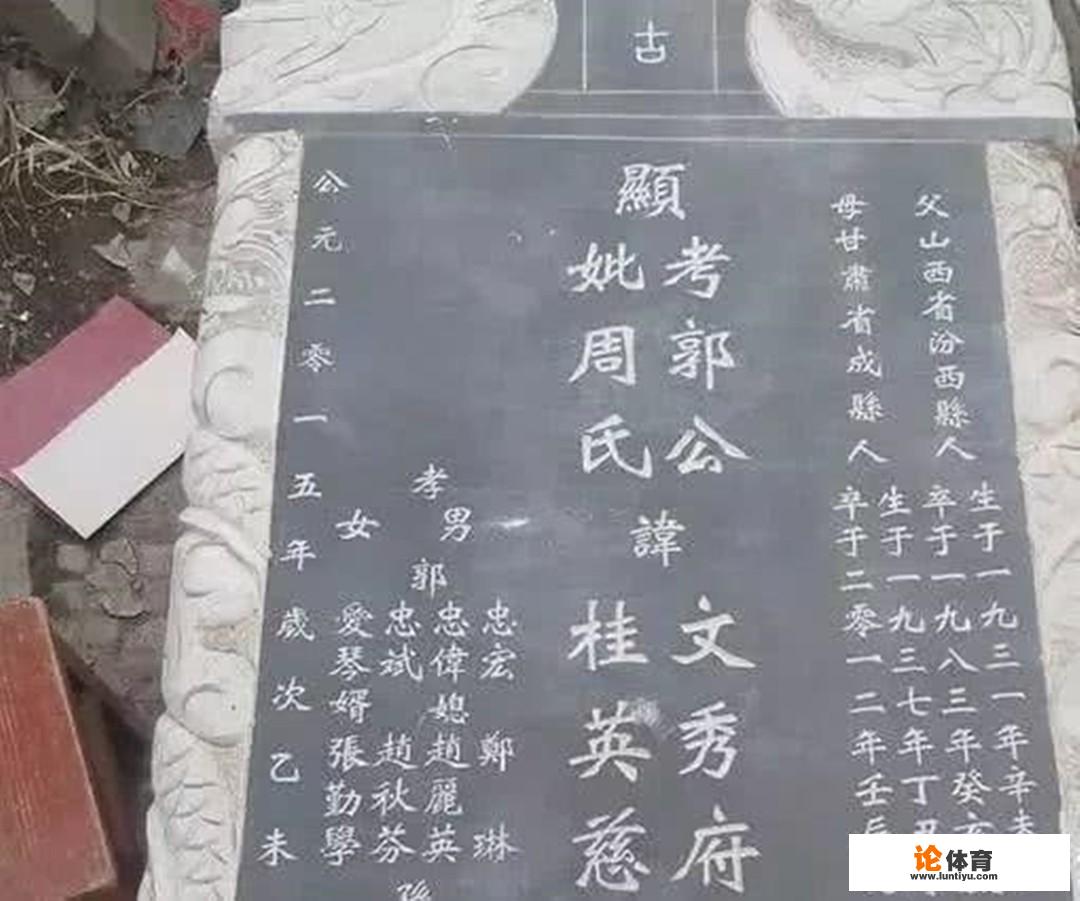 古
父山西省汾西縣人
生于一九三一年辛未
卒于一九八三年癸亥
母甘肅省成縣人
生于一九三七年丁丑
卒于二零一二年壬辰
顯
考郭公
妣周氏
諱
文秀府
桂英慈
孝
男
女
郭
忠宏 鄭琳
忠偉媳趙麗英
忠斌 趙秋芬
愛琴婿張勤學
孫
公元二零一五年歲次乙未
论体育
www.luntiyu.com